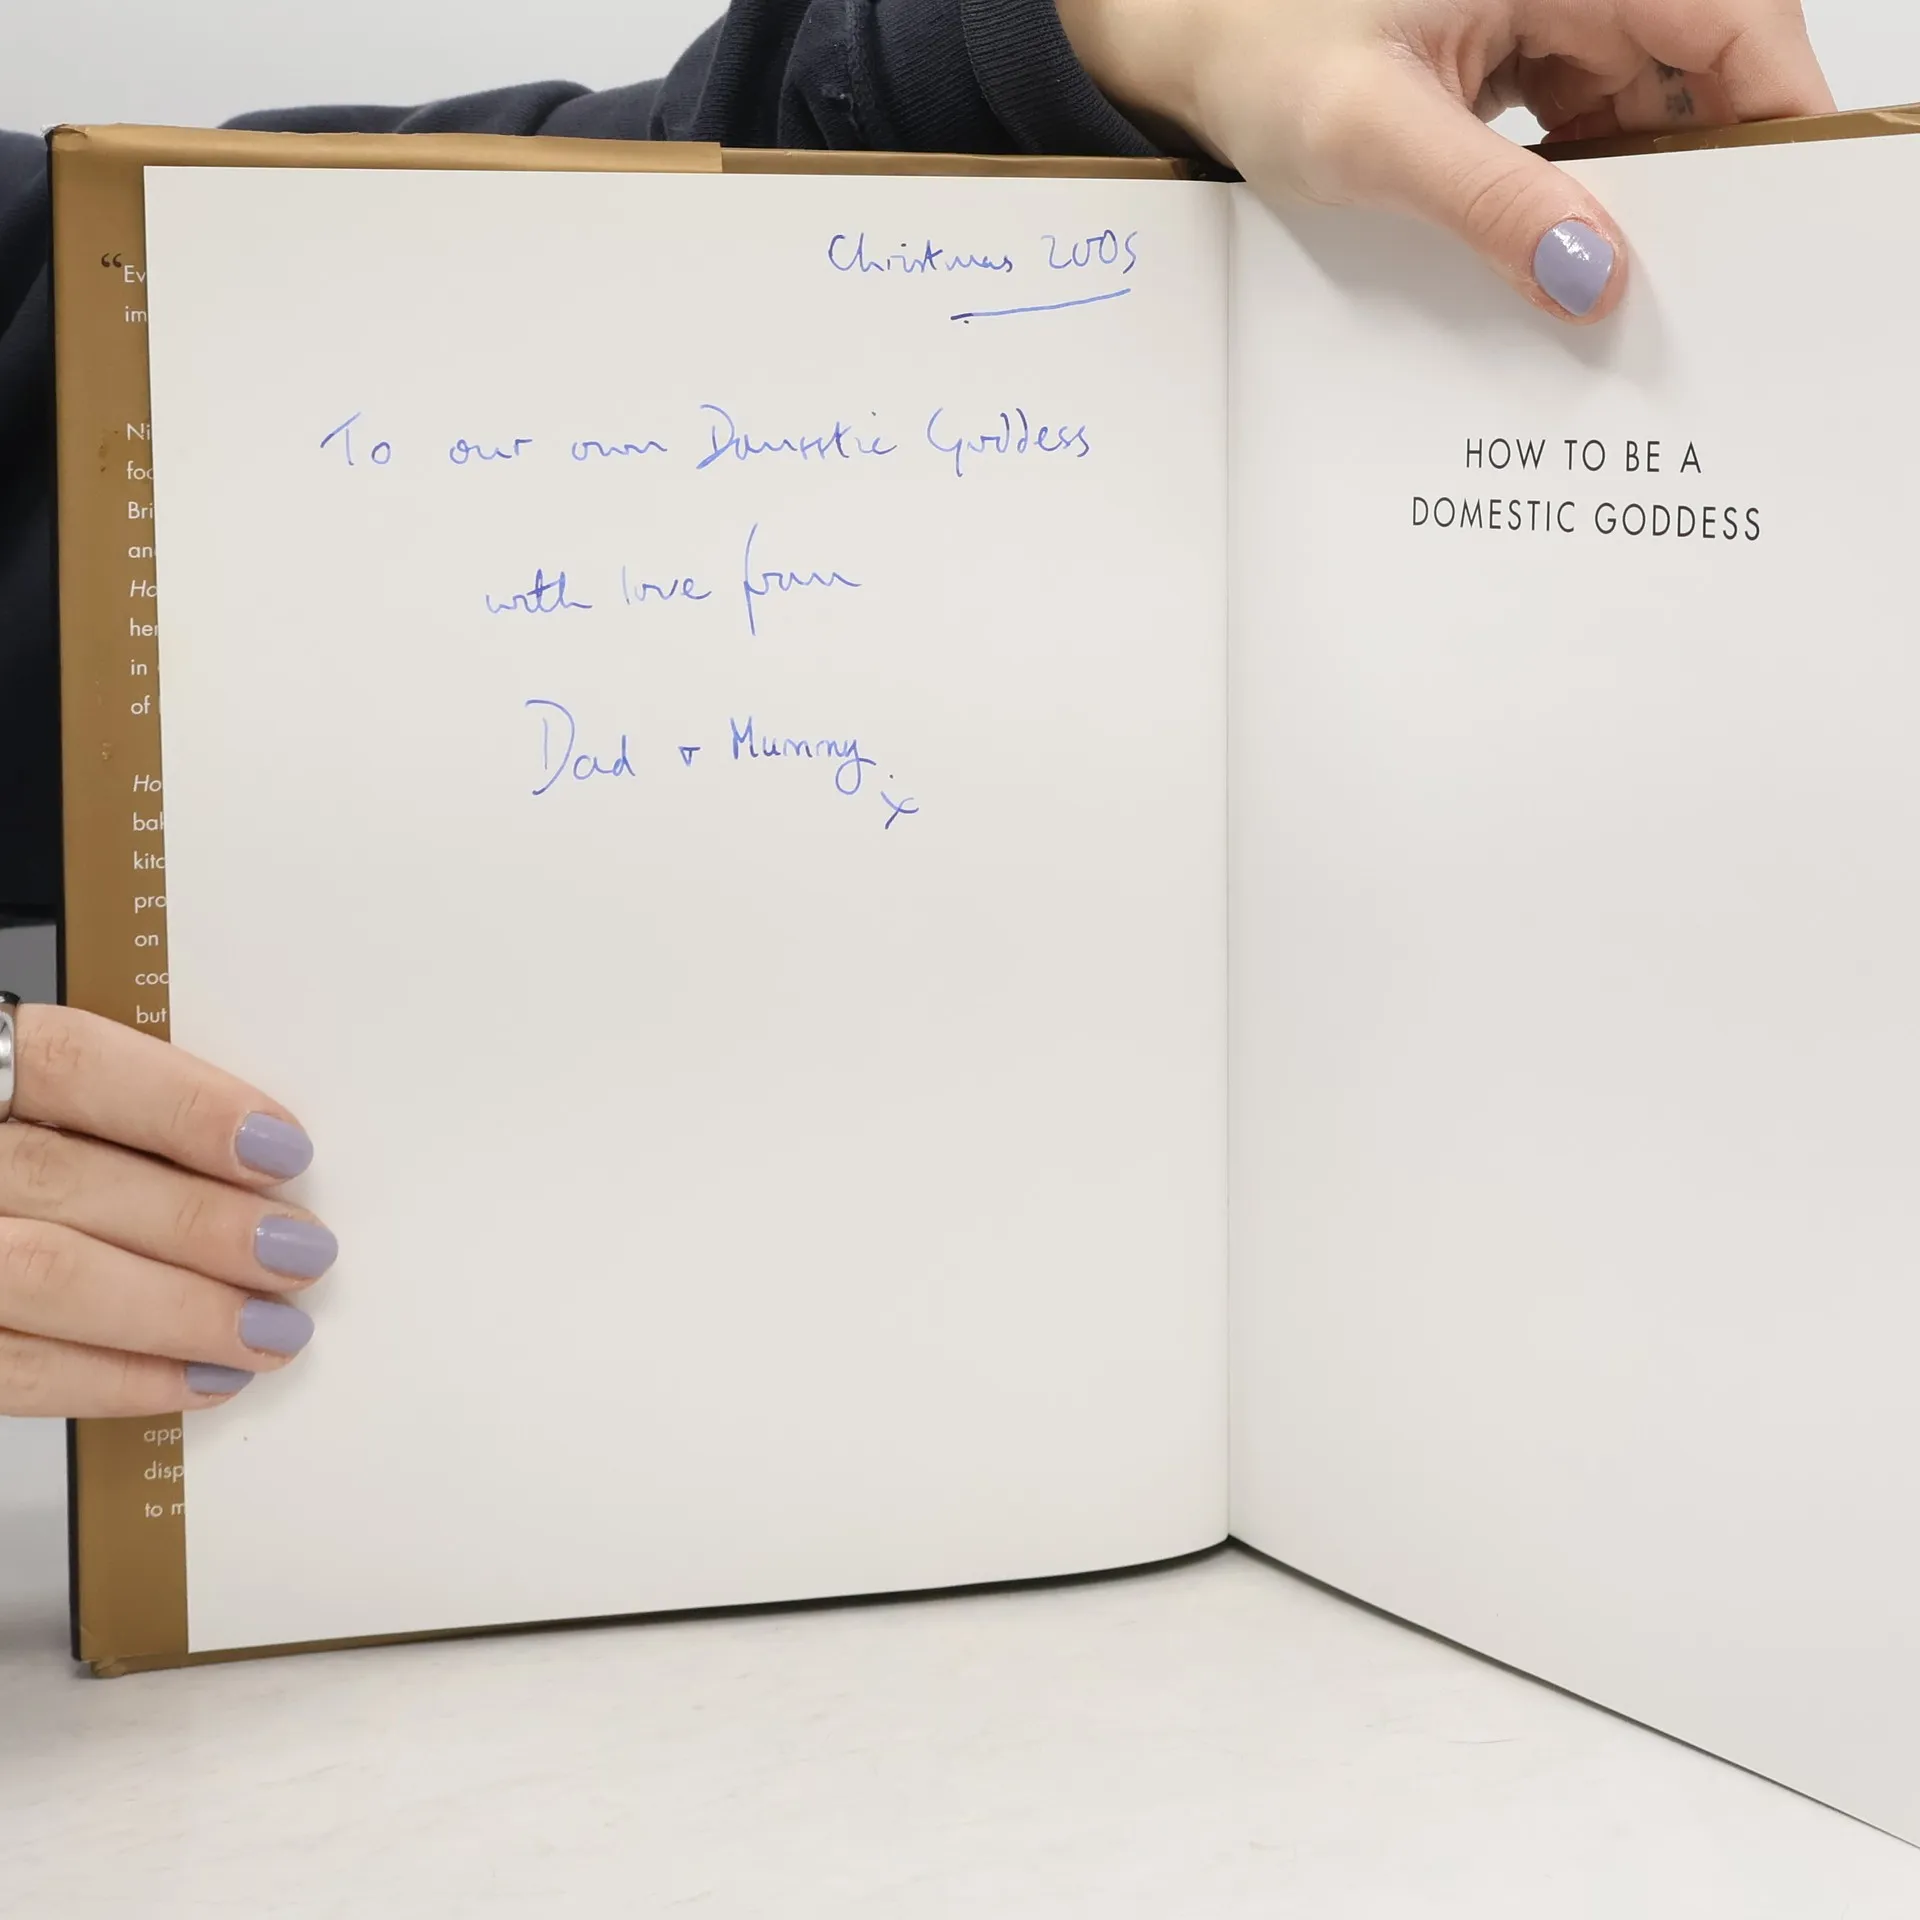 “Ev
im
Ni
foo
Bri
an
Ho
her
in
of
Ho
bak
kitc
pro
on
coo
but
app
disp
to m
Christmas 2005
To our own Domestic Goddess
with love from
Dad + Mummy
x
HOW TO BE A
DOMESTIC GODDESS